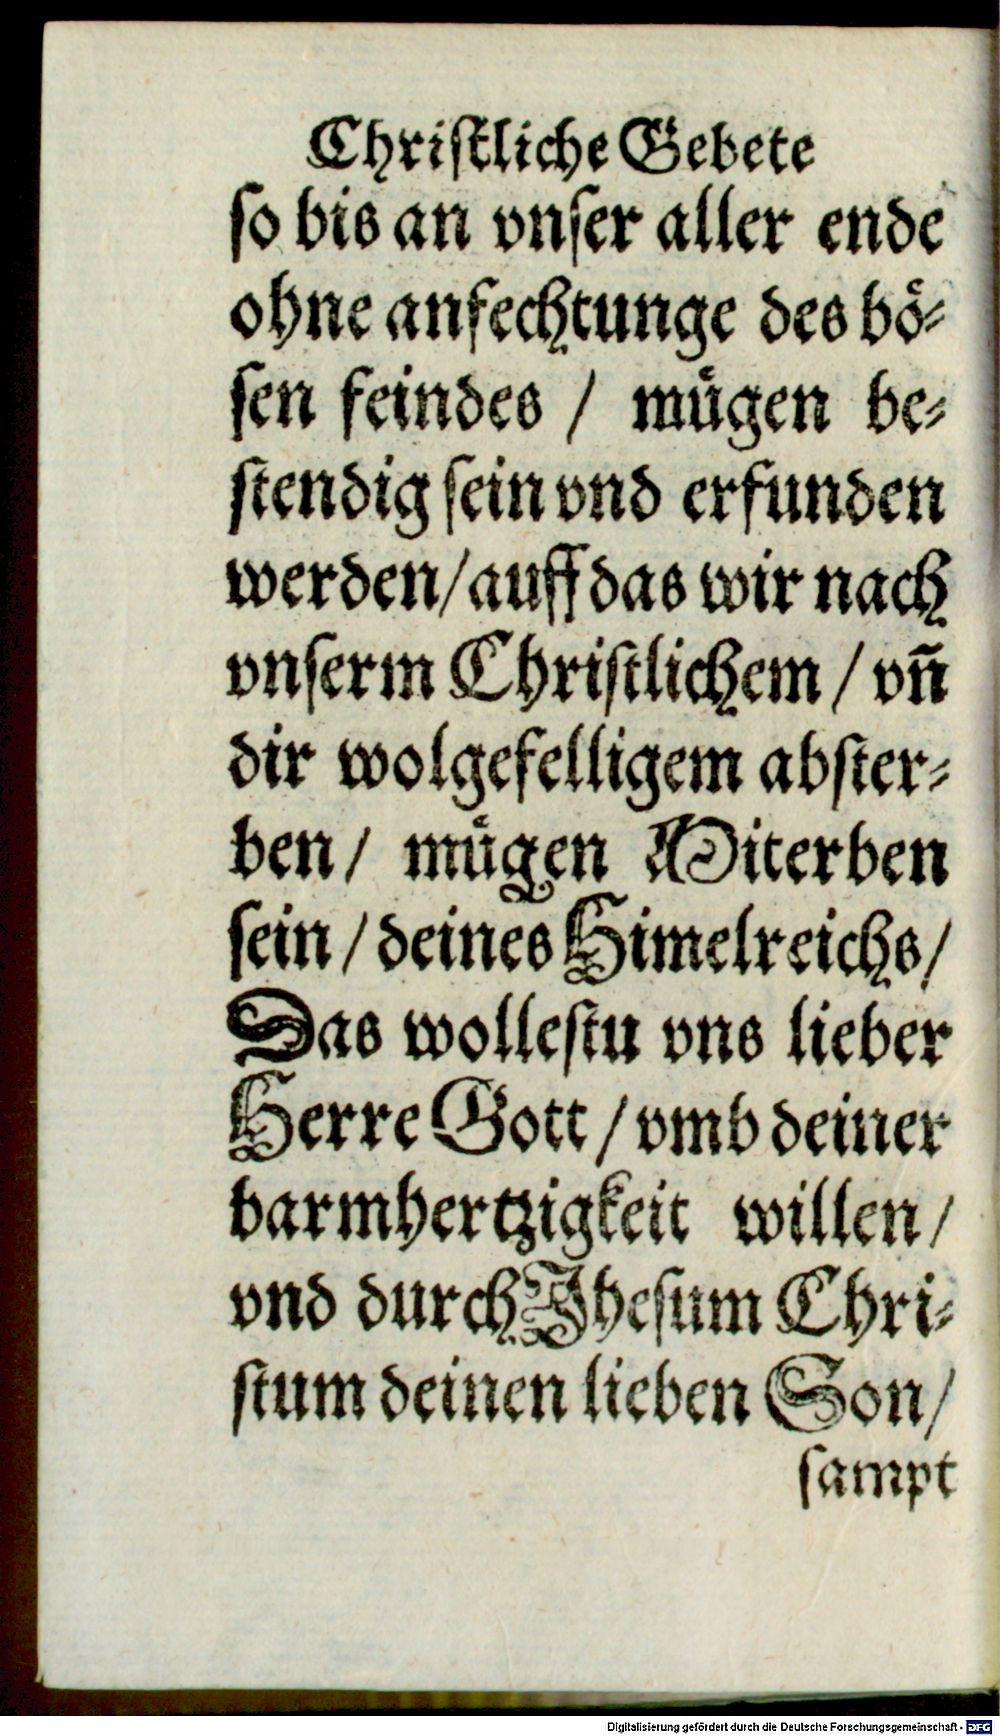 Chriſtliche Gebete
ſo bis an vnſer aller ende
ohne anfechtunge des boͤ⸗
ſen feindes / muͤgen be⸗
ſtendig ſein vnd erfunden
werden / auff das wir nach
vnſerm Chriſtlichem / vn̄
dir wolgefelligem abſter⸗
ben / muͤgen Miterben
ſein / deines Himelreichs /
Das wolleſtu vns lieber
Herre Gott / vmb deiner
barmhertzigkeit willen /
vnd durch Jheſum Chri⸗
ſtum deinen lieben Son /
ſampt
Digitalisierung gefördert durch die Deutsche Forschungsgemeinschaft - DFG